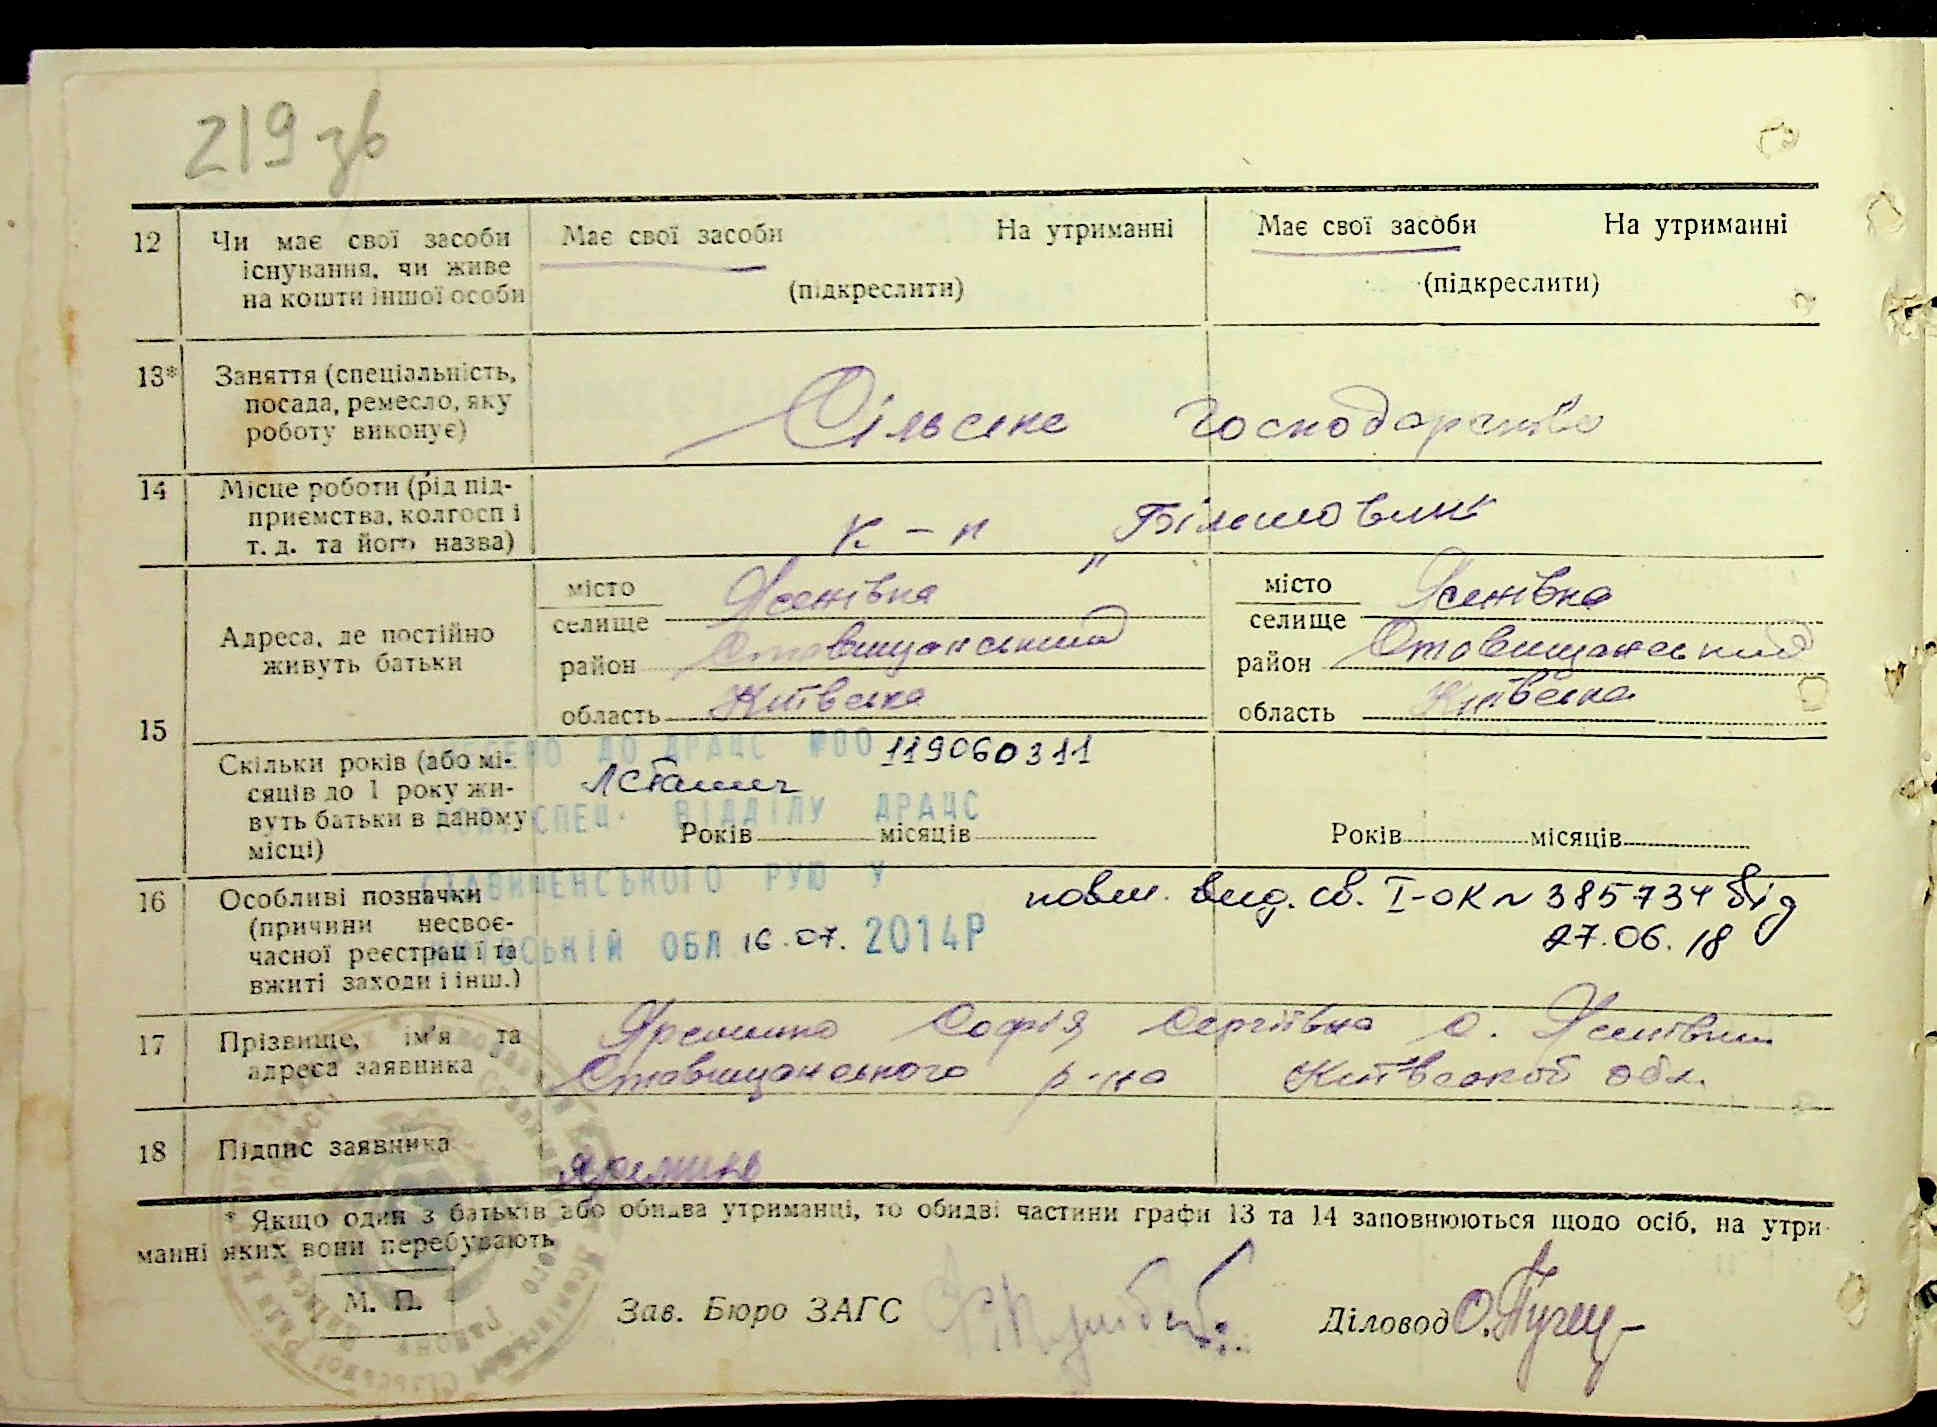 219 зв
12 Чи має свої засоби Має свої засоби На утриманні Має свої засоби На утриманні
існування, чи живе
на кошти іншої особи (підкреслити) (підкреслити)
13* Заняття (спеціальність,
посада, ремесло, яку Сільське господарство
роботу виконує)
14 Місце роботи (рід під-
приємства, колгосп і к-п „Більшовик"
т. д. та його назва)
місто Ясенівка місто Ясенівка
селище селище
Адреса, де постійно район Ставищанський район Ставищанський
живуть батьки
область Київська область Київська
15
ДО ДРАЦС №00 119060311
Скільки років (або мі-
сяців до 1 року жи-
СПЕЦ. ВІДДІЛУ ДРАЦС
вуть батьки в даному Років місяців Років місяців
місці)
СТАВИЩЕНСЬКОГО РУЮ У
16 Особливі позначки повт. вид. св. І-ОК № 385734 від
(причини несвоє- 27.06.18
часної реєстрації та ОБЛ 16.07. 2014Р
вжиті заходи і інш.)
17 Прізвище, ім'я та Яремино Софія Сергіївна с. Ясенівки
адреса заявника Ставищанського р-на Київської обл.
18 Підпис заявника
* Якщо один з батьків або обидва утриманці, то обидві частини графи 13 та 14 заповнюються щодо осіб, на утри-
манні яких вони перебувають
М. П. Зав. Бюро ЗАГС Діловод